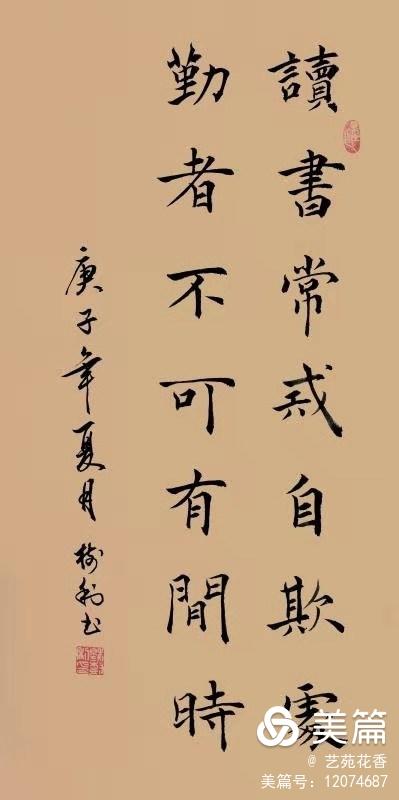 讀書常戒自欺處
勤者不可有閒時
庚子年夏月樹利书
美篇
@艺苑花香
美篇号:12074687